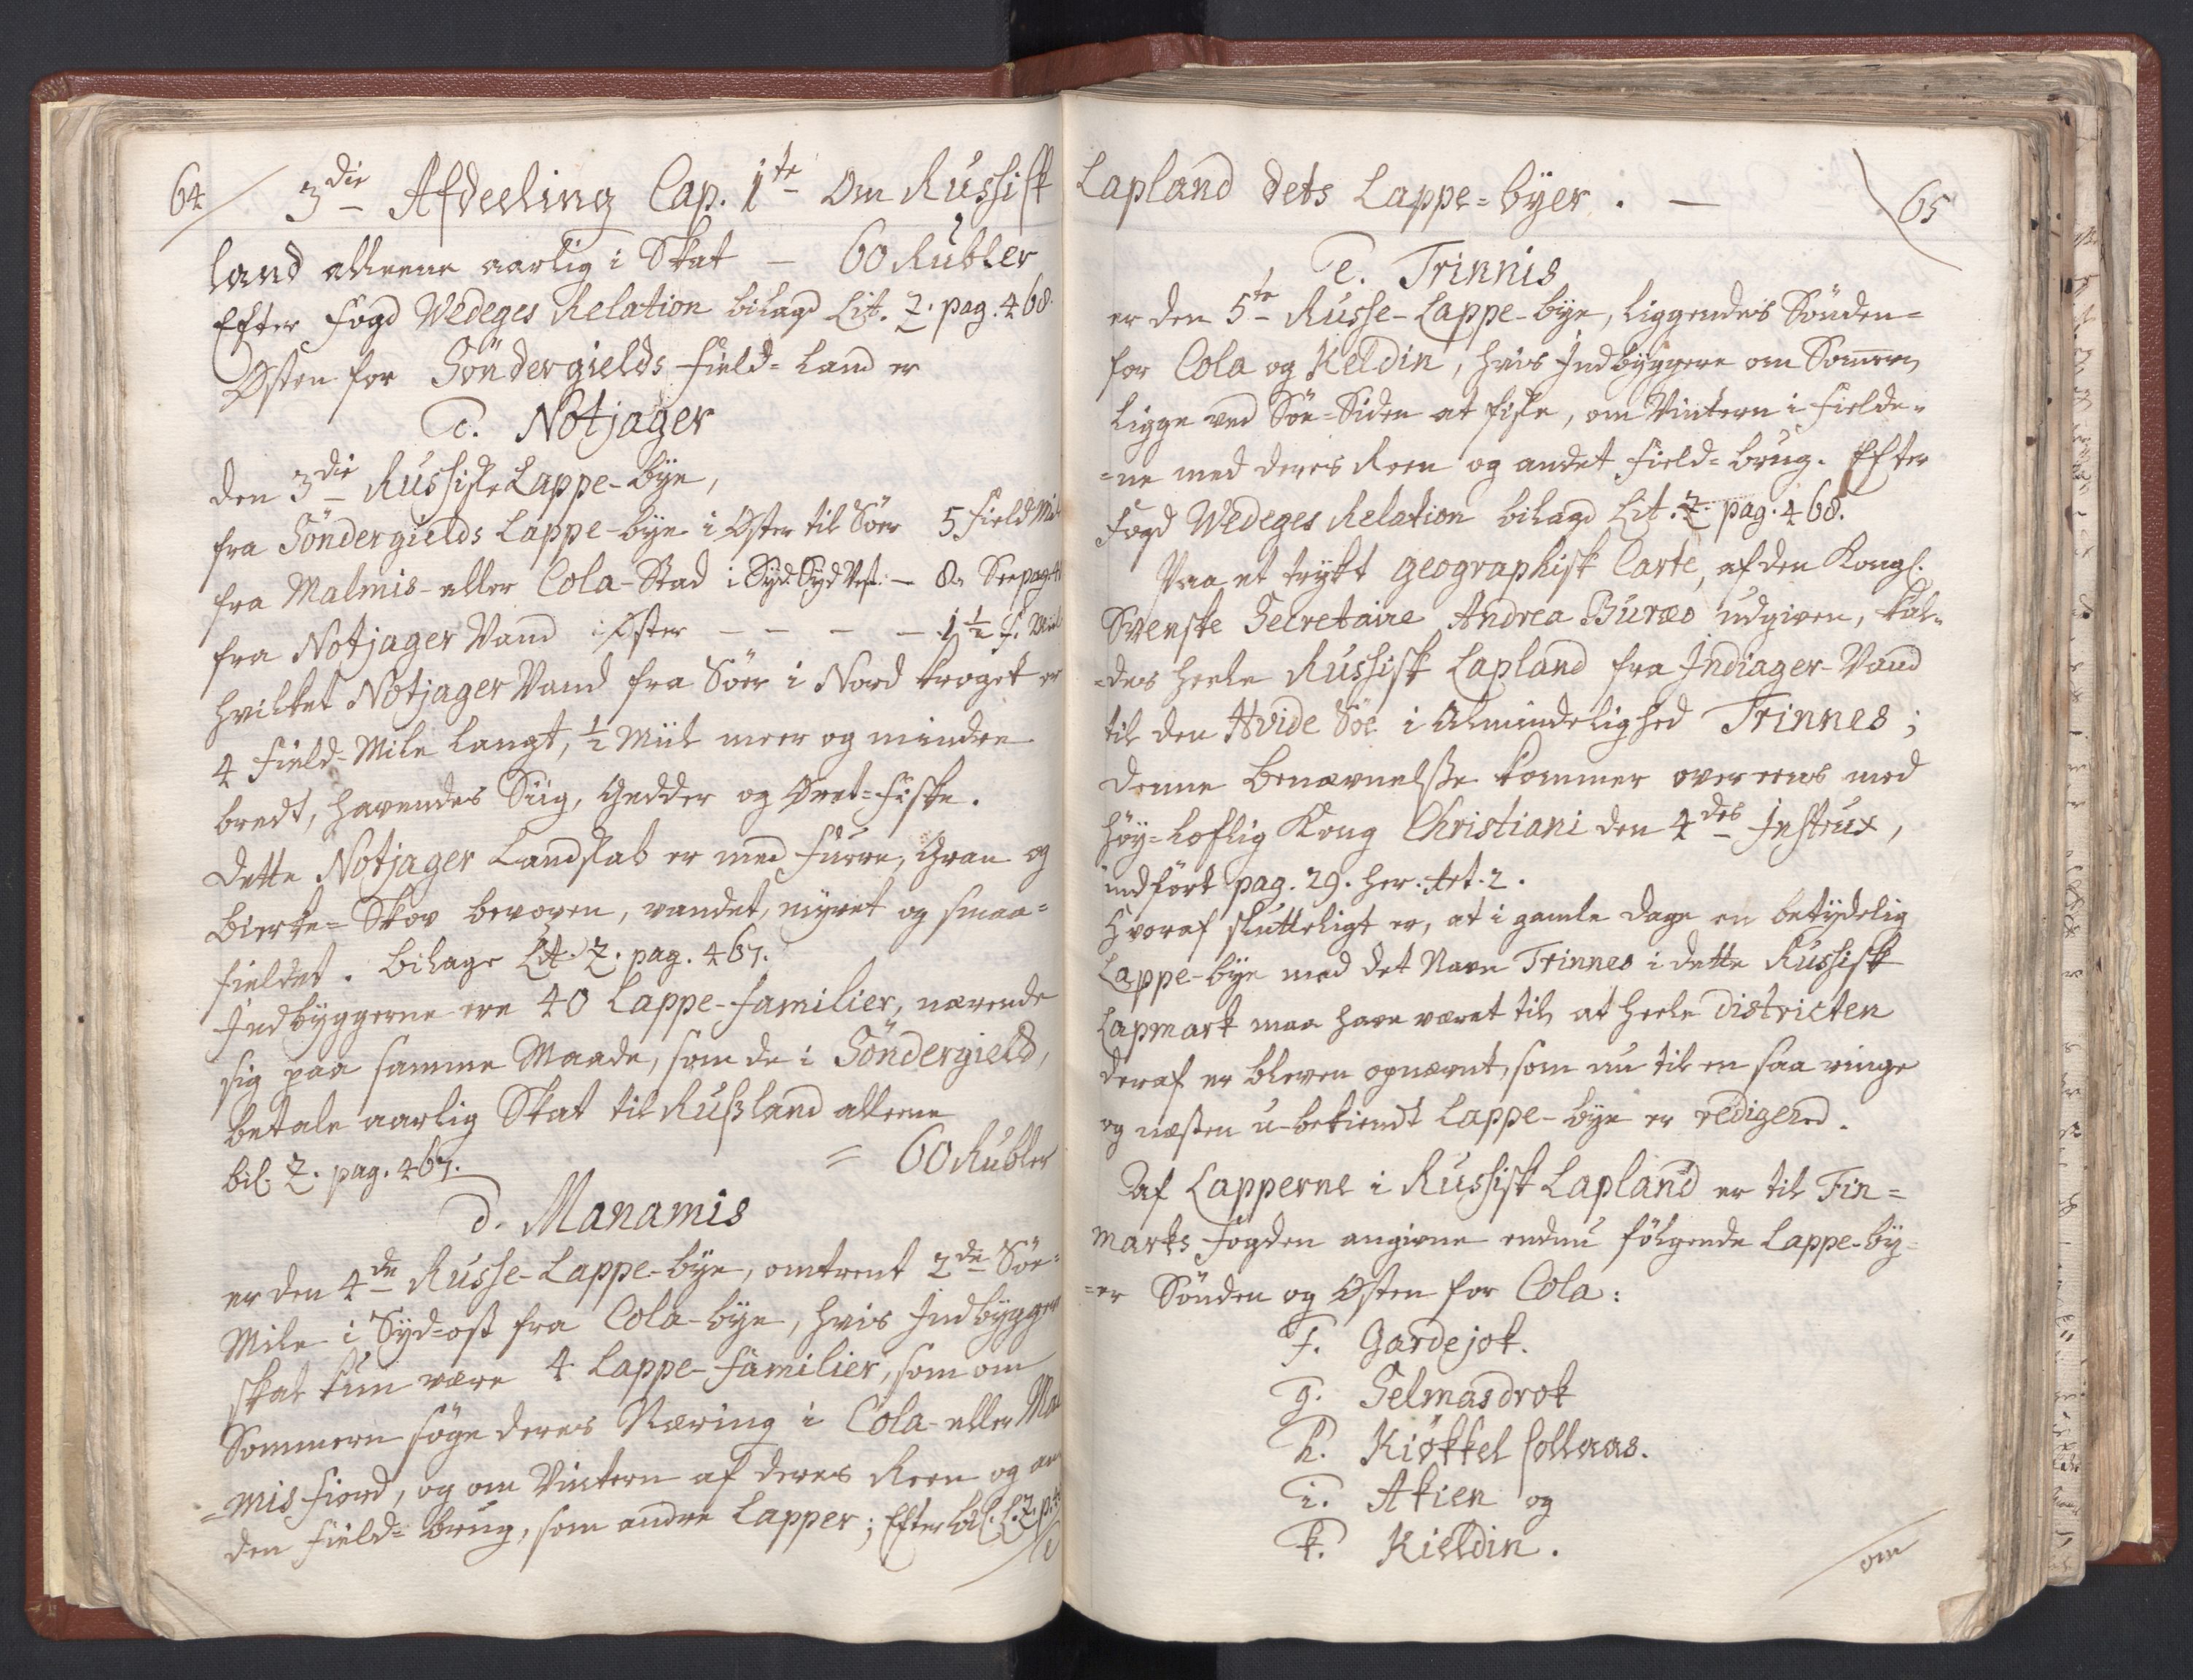 64
3die Afdeeling Cap. 1te Om Russisk
land alleene aarlig i Skat — 60 Rubler
Efter Fogd Wedeges Relation bilagd Lit. Z. pag. 468.
Østen for Söndergields Field-Land er
c. Notjager
den 3die Russiske Lappe-bye,
fra Söndergields Lappe-bye i Øster til Sör 5 Field Mil
fra Malmis- eller Cola-Stad i Syd Syd Vest — 8. See pag.
fra Notjager Vand i Øster — — — — 1 1/2 f. Miil
hvilket Notjager Vand fra Sör i Nord troget er
4 Field-Mile langt, 1/2 Miil meer og mindre
bredt, havendes Siig, Gedder og Øret-Fiske.
Dette Notjager Landskab er med Furre, Gran og
Birke-Skov bevoxen, vandet, myret og smaa-
fieldet. Bilage Lit. Z. pag. 467.
Indbyggerne ere 40 Lappe-familier, nærende
sig paa samme Maade, som de i Söndergield,
betale aarlig Skat til Rusland alleene
bil. Z. pag. 467. = 60 Rubler
d. Manamis
er den 4de Russe-Lappe-bye, omtrent 2de Söe-
Mile i Syd-ost fra Cola-bye, hvis Indbygger
skal kun være 4 Lappe-familier, som om
Sommeren söge deres Næring i Cola- eller Mal
-mis Fiord, og om Vintern af deres Reen og an
den Field-brug, som andre Lapper; Efter bil. L. Z. p.
Lapland dets Lappe-byer. —
65
e. Trinnis
er den 5te Russe-Lappe-bye, liggendes Sönden-
for Cola og Keldin, hvis Indbyggere om Sommern
ligge ved Söe-Siden at fiske, om Vintern i Fielde-
-ne med deres Reen og andet Field-brug. Efter
Fogd Wedeges Relation bilagd Lit. Z. pag. 468.
Paa et trykt geographisk Carte, af den Kongl.
Svenske Secretaire Andrea Buræo udgiven, kal-
-des heele Russisk Lapland fra Indiager-Vand
til den Hvide Söe i Almindelighed Trinnes;
denne benævnelsse kommer overeens med
höy-loflig Kong Christiani den 4des Instrux,
indfört pag. 29. her. Art. 2.
Hvoraf slutteligt er, at i gamle dage en betydelig
Lappe-bye med det Navn Trinnes i dette Russisk
Lapmark maa have været til, at heele Districten
deraf er bleven opnævnt, som nu til en saa ringe
og næsten u-bekiendt Lappe-bye er redigered.
Af Lapperne i Russisk Lapland er til Fin-
marks Fogden angivne endnu fölgende Lappe-by-
-er Sönden og Østen for Cola:
f. Gardejok.
g. Selmasdrok
h. Kiökkel Collaas.
i. Akien og
k. Kieldin.
om